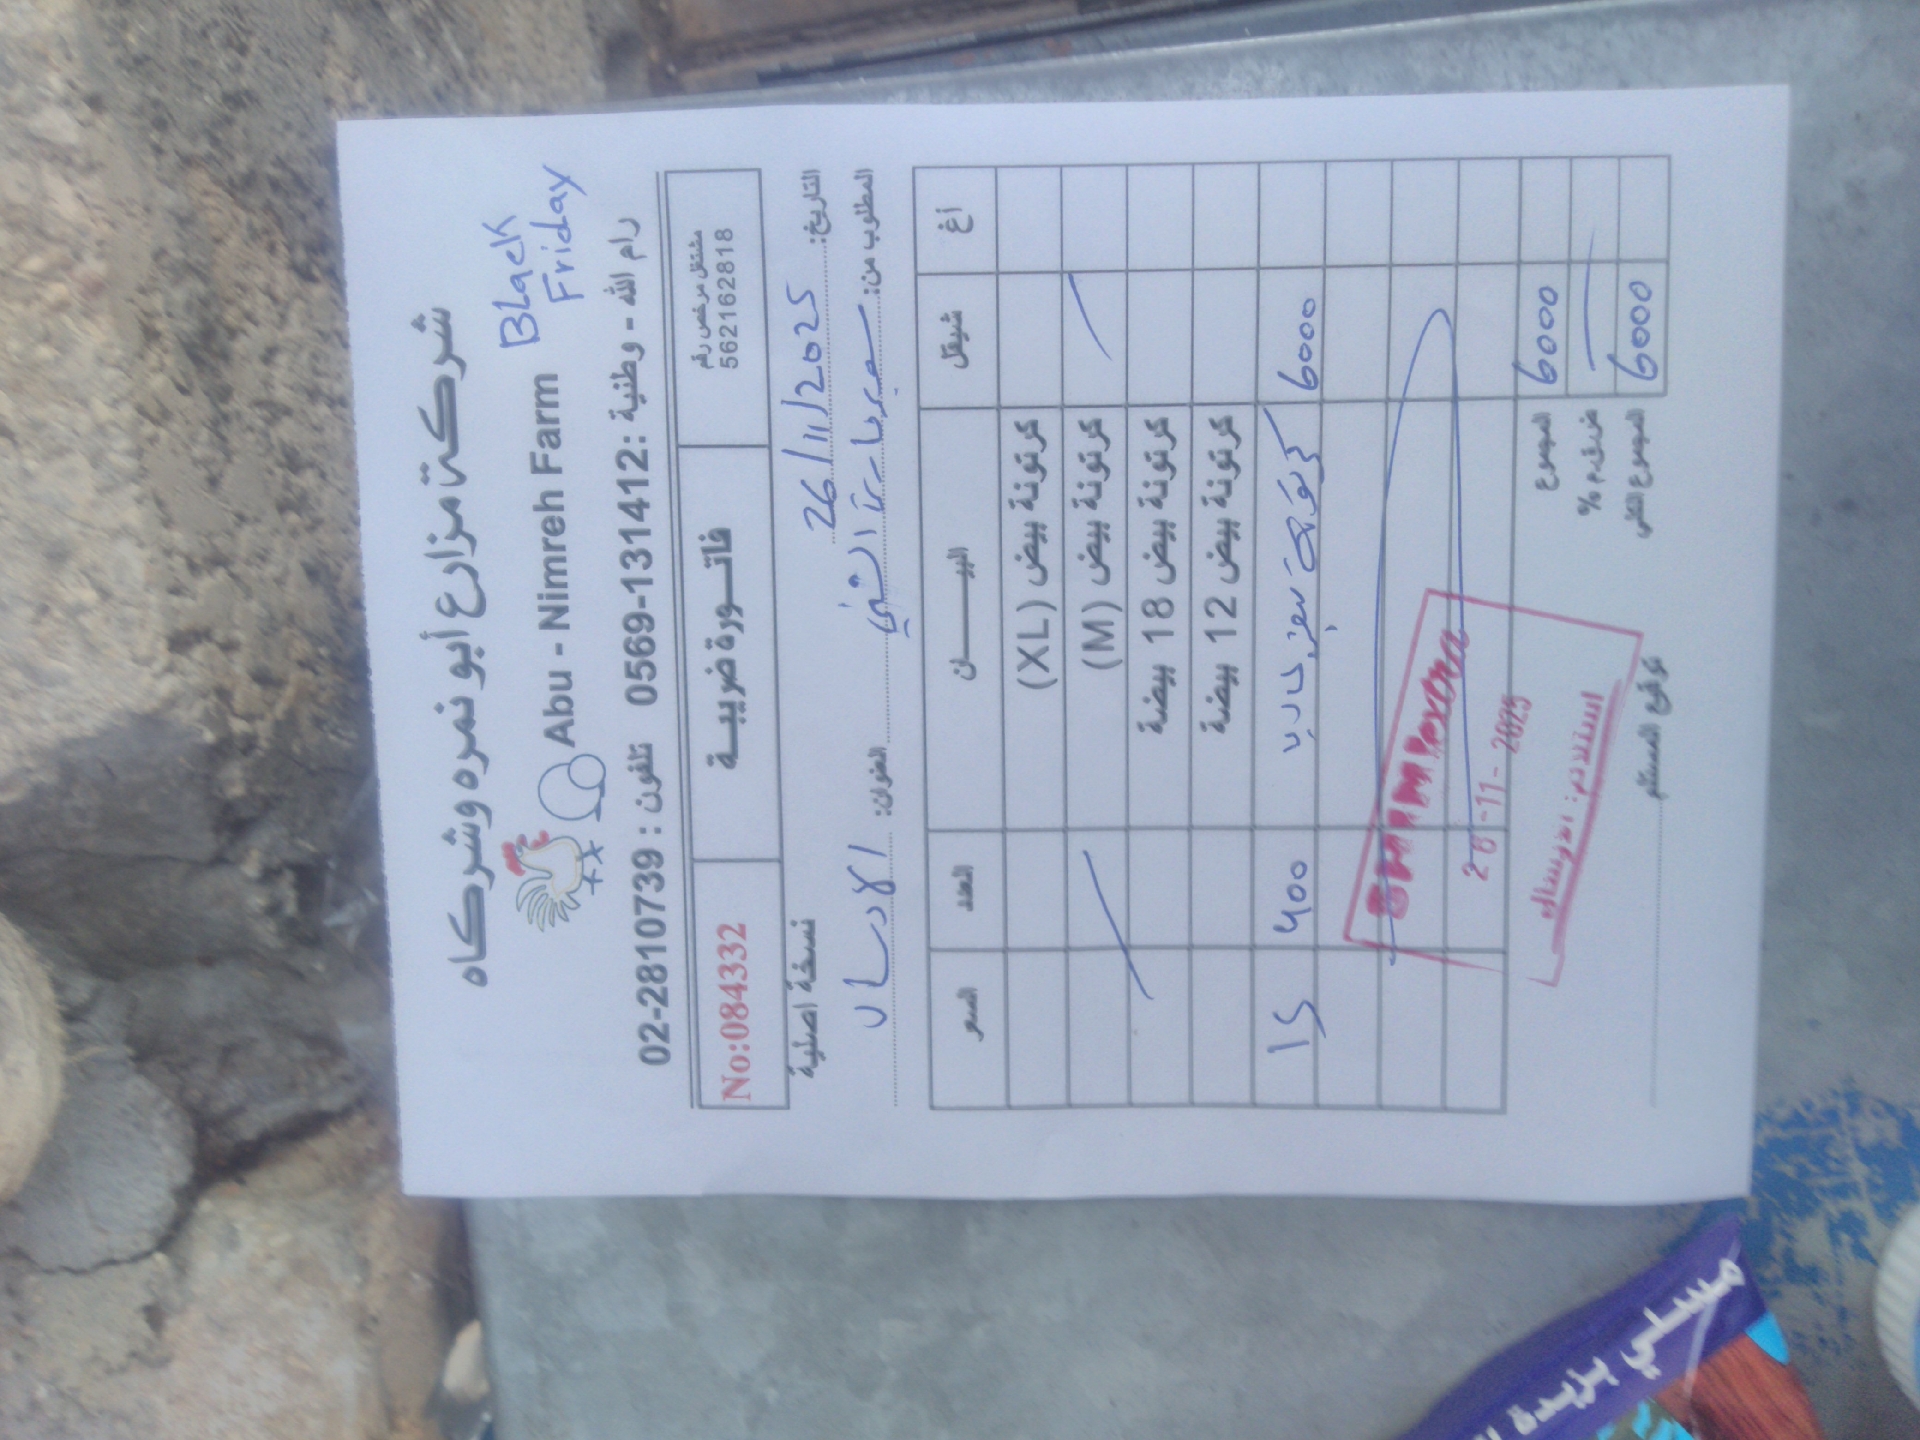 شركة مزارع أبو نمره وشركاه
Abu - Nimreh Farm
Black
Friday
رام الله - وطنية : 0569-131412 تلفون : 02-2810739
مشتغل مرخص رقم
562162818
فاتــورة ضريبيـة
No:084332
التاريخ: 26/11/2025
نسخة اصلية
المطلوب من: سوبر ماركت الشني العنوان: الارسال
أغ شيقل البيــــــان العدد السعر
كرتونة بيض (XL)
كرتونة بيض (M)
كرتونة بيض 18 بيضة
كرتونة بيض 12 بيضة
6000 كرتونة بيض 400 15
المجموع 6000
ض.ق.م %
المجموع الكلي 6000
26-11-2025
استلام: الارسال
توقيع المستلم
مسلي بزيدة